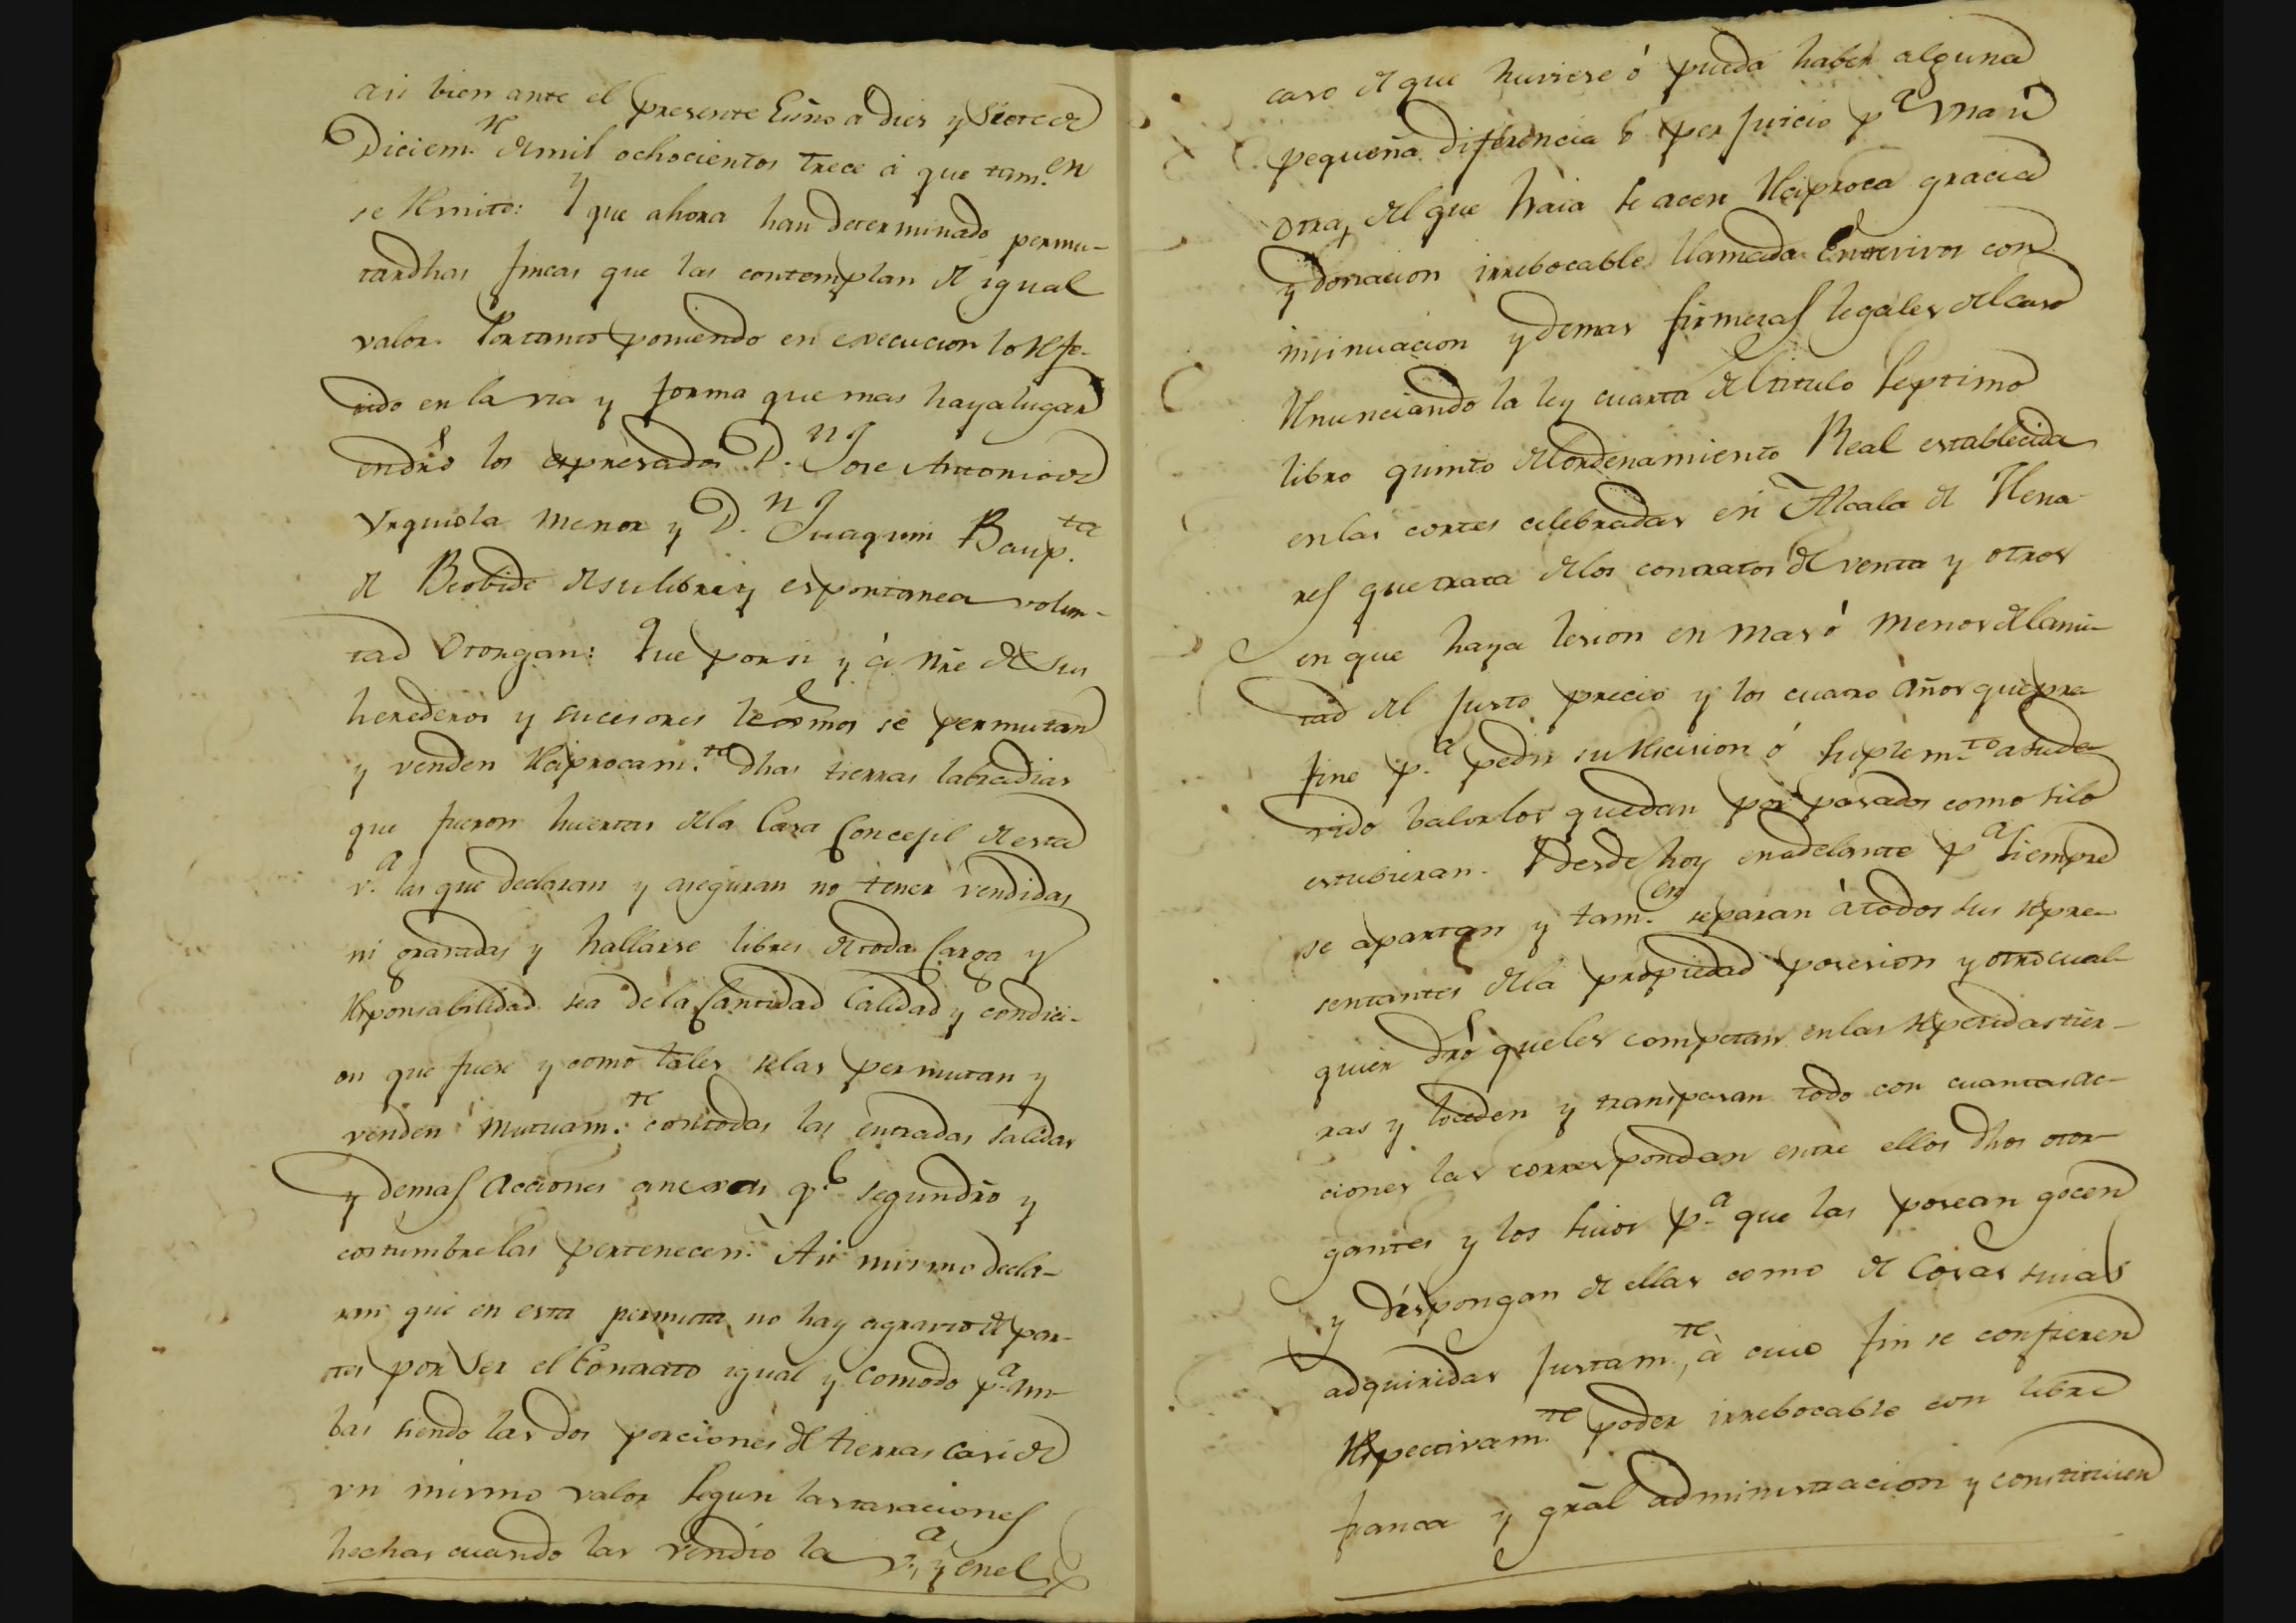 asi bien ante el presente Esñno a dies y Siete de
Diciem.re de mil ochocientos trece á que tam.en
se remito: Y que ahora han determinado permu-
tar dhas fincas que las contemplan de igual
valor. Por tanto poniendo en execucion lo refe-
rido en la via y forma que mas haya lugar
en dr̃o los expresados D.n Jose Antonio de
Urquiola menor y D.n Juaquin Baup.ta
de Beobide de su libre y espontanea volun-
tad Otorgan: Que por si y á nr̃e de sus
herederos y sucesores lexmos se permutan
y venden reciprocam.te dhas tierras labradias
que fueron huertas de la Casa Concejil de esta
v.a las que declaran y aseguran no tener vendidas
ni gravadas y hallarse libres de toda Carga y
responsabilidad sea de la Cantidad Calidad y condici-
on que fuere y como tales se las permutan y
venden mutuam.te con todas las entradas salidas
y demas Acciones anexas q.e segun dr̃o y
costumbre las pertenecen. Asi mismo decla-
ran que en esta permuta no hay agravio de par-
tes por Ser el Contrato igual y comodo p.a am-
bas siendo las dos porciones de tierras casi de
un mismo valor Segun las tasaciones
hechas cuando las vendio la v.a, y en el
caso de que huviese ó pueda haber alguna
pequeña diferencia ó perjuicio p.a una ú
otra, del que haia se acen reciproca gracia
y donacion irrebocable llamada Entrevivos con
insinuacion y demas firmezas legales del caso
renunciando la ley cuarta del titulo Septimo
libro quinto del ordenamiento Real establecida
en las cortes celebradas en Alcala de Hena-
res que trata de los contratos de venta y otros
en que haya lesion en mas ó menos de la mi-
tad del Justo precio y los cuatro Años que pre-
fine p.a pedir su recision ó suplem.to a su de-
vido balor los quedan por pasados como si lo
estubieran. Desde hoy en adelante p.a siempre
se apartan y tam.en separan á todos sus repre-
sentantes de la propiedad posesion y otro cual-
quier dr̃o que les competan en las repetidas tier-
ras y lo ceden y transpasan todo con cuantas ac-
ciones las correspondan entre ellos dhos otor-
gantes y los suios p.a que las posean gocen
y dispongan de ellas como de Cosas suias
adquiridas Justam.te, á cuio fin se confieren
respectivam.te poder irrebocable con libre
franca y gr̃al administracion y constituien